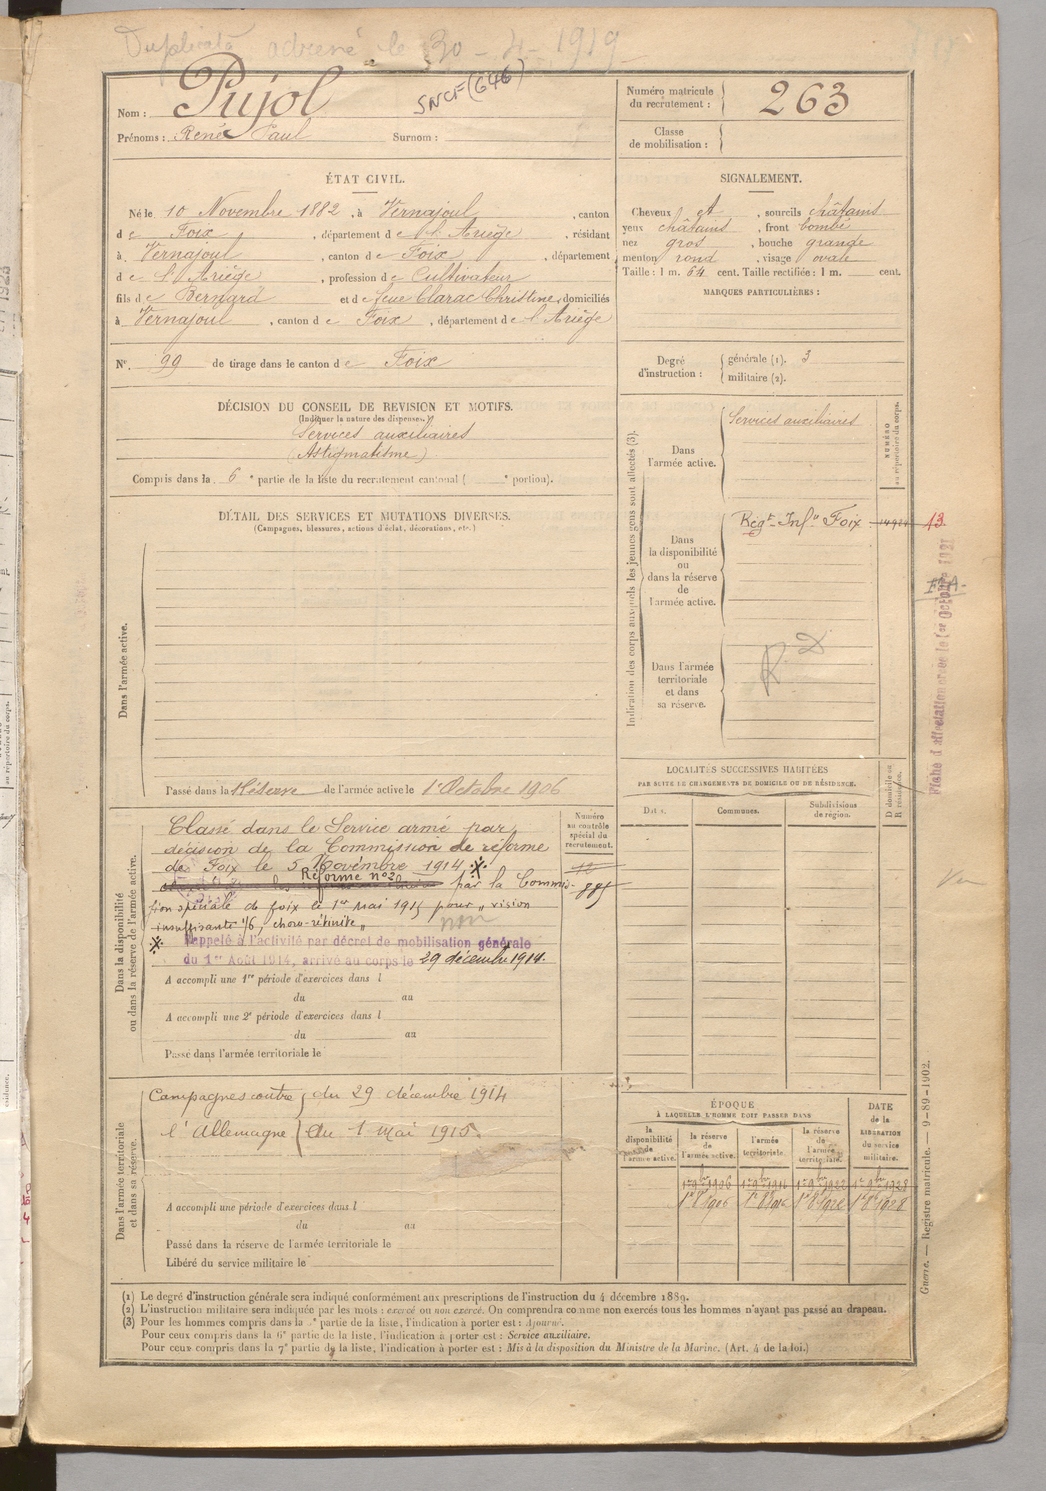 Duplicata adressé le 30-4-1919
Nom : Pujol
SNCF (646)
Prénoms : René Paul Surnom :
Numéro matricule du recrutement : 263
Classe de mobilisation :
ÉTAT CIVIL.
Né le 10 Novembre 1882, à Vernajoul, canton
de Foix, département de l'Ariège, résidant
à Vernajoul, canton de Foix, département
de l'Ariège, profession de Cultivateur
fils de Bernard et de feue Clarac Christine, domiciliés
à Vernajoul, canton de Foix, département de l'Ariège
N° 99 de tirage dans le canton de Foix
SIGNALEMENT.
Cheveux et, sourcils châtains
yeux châtains, front bombé
nez gros, bouche grande
menton rond, visage ovale
Taille : 1 m. 64 cent. Taille rectifiée : 1 m. cent.
MARQUES PARTICULIÈRES :
Degré d'instruction : générale (1). 3
militaire (2).
DÉCISION DU CONSEIL DE REVISION ET MOTIFS.
(Indiquer la nature des dispenses.)
Services auxiliaires
(Astigmatisme)
Compris dans la 6e partie de la liste du recrutement cantonal ( e portion).
DÉTAIL DES SERVICES ET MUTATIONS DIVERSES.
(Campagnes, blessures, actions d'éclat, décorations, etc.)
Dans l'armée active.
Passé dans la Réserve de l'armée active le 1er Octobre 1906
Indication des corps auxquels les jeunes gens sont affectés (3).
NUMÉRO au répertoire du corps.
Dans l'armée active.
Services auxiliaires
Dans la disponibilité ou dans la réserve de l'armée active.
Régt Infie Foix
13
Dans l'armée territoriale et dans sa réserve.
R D
Fiche d'affectation créée le 1er Octobre 1921
LOCALITÉS SUCCESSIVES HABITÉES
PAR SUITE DE CHANGEMENTS DE DOMICILE OU DE RÉSIDENCE.
Dates. Communes. Subdivisions de région. D domicile ou R résidence.
Dans la disponibilité ou dans la réserve de l'armée active.
Numéro au contrôle spécial du recrutement.
12
885
Classé dans le Service armé par
décision de la Commission de réforme
de Foix le 5 Novembre 1914 ※
Réformé n°2 par la Commis-
sion spéciale de foix le 1er Mai 1915 pour „ vision
insuffisante 1/6, choro-rétinite „
non
※ Rappelé à l'activité par décret de mobilisation générale
du 1er Août 1914, arrivé au corps le 29 décembre 1914.
A accompli une 1re période d'exercices dans l
du au
A accompli une 2e période d'exercices dans l
du au
Passé dans l'armée territoriale le
Dans l'armée territoriale et dans sa réserve.
Campagnes contre du 29 décembre 1914
l'Allemagne au 1 mai 1915.
A accompli une période d'exercices dans l
du au
Passé dans la réserve de l'armée territoriale le
Libéré du service militaire le
ÉPOQUE
À LAQUELLE L'HOMME DOIT PASSER DANS
DATE de la LIBÉRATION du service militaire.
la disponibilité de l'armée active. la réserve de l'armée active. l'armée territoriale. la réserve de l'armée territoriale.
(1) Le degré d'instruction générale sera indiqué conformément aux prescriptions de l'instruction du 4 décembre 1889.
(2) L'instruction militaire sera indiquée par les mots : exercé ou non exercé. On comprendra comme non exercés tous les hommes n'ayant pas passé au drapeau.
(3) Pour les hommes compris dans la partie de la liste, l'indication à porter est : Ajourné.
Pour ceux compris dans la 6e partie de la liste, l'indication à porter est : Service auxiliaire.
Pour ceux compris dans la 7e partie de la liste, l'indication à porter est : Mis à la disposition du Ministre de la Marine. (Art. 4 de la loi.)
Guerre. — Registre matricule. — 9-89-1902.